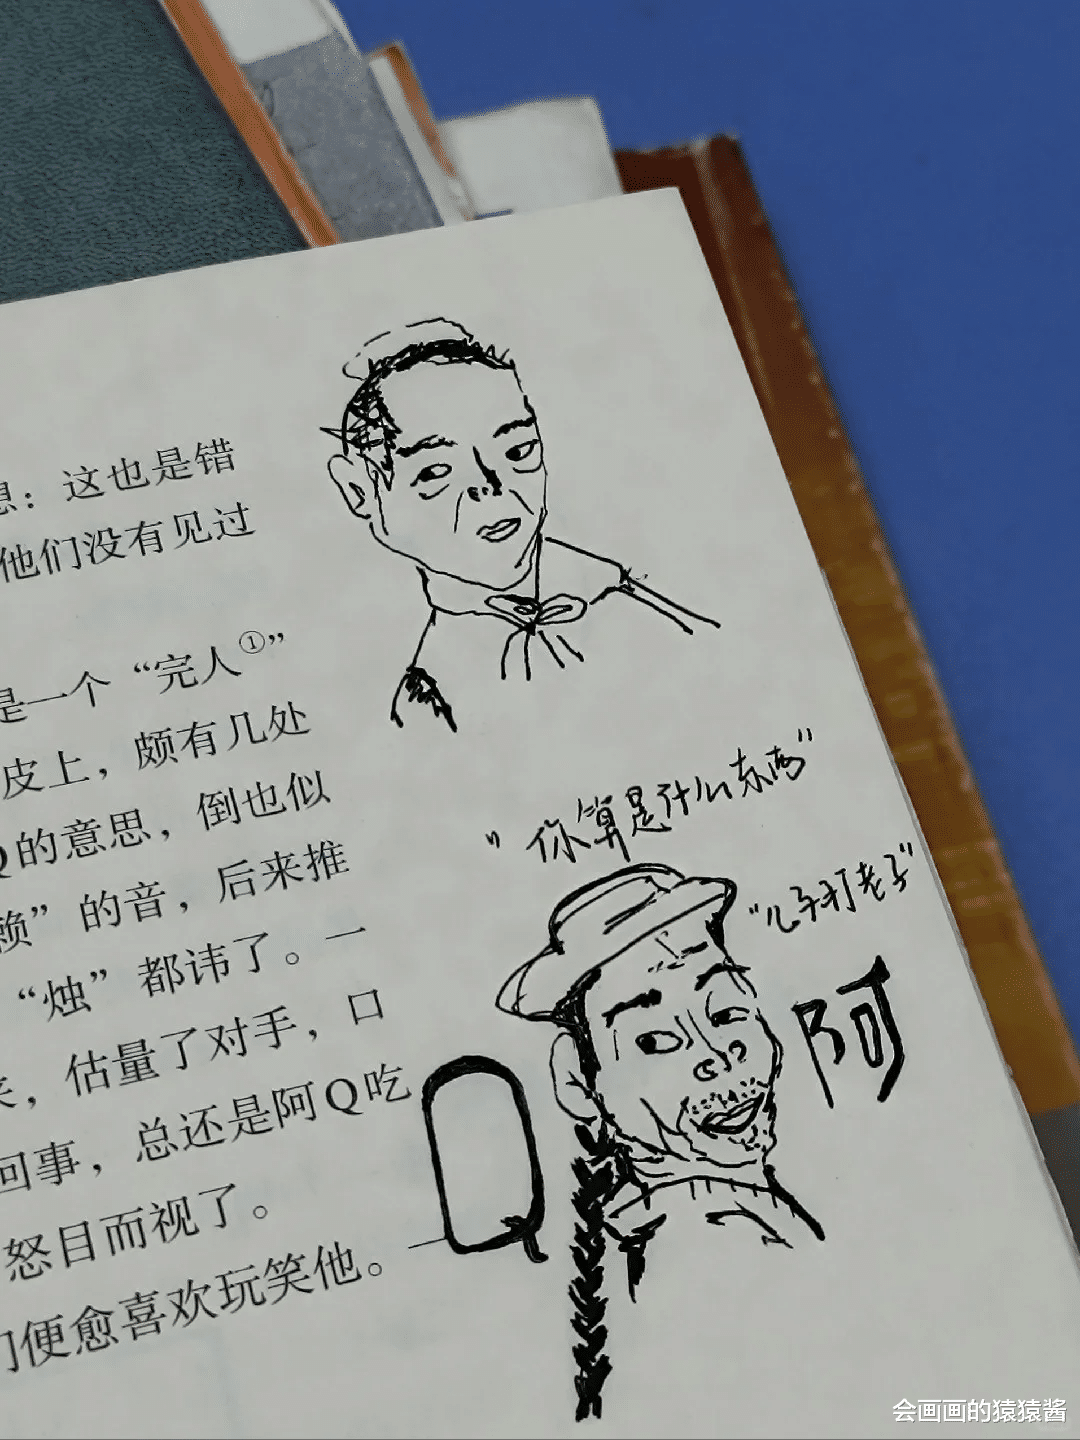 思：这也是错
他们没有见过
是一个“完人①”
皮上，颇有几处
Q的意思，倒也似
赖”的音，后来推
“烛”都讳了。一
来，估量了对手，口
回事，总还是阿Q吃
怒目而视了。
们便愈喜欢玩笑他。一
"你算是什么东西"
"儿子打老子"
阿
Q
会画画的猿猿酱